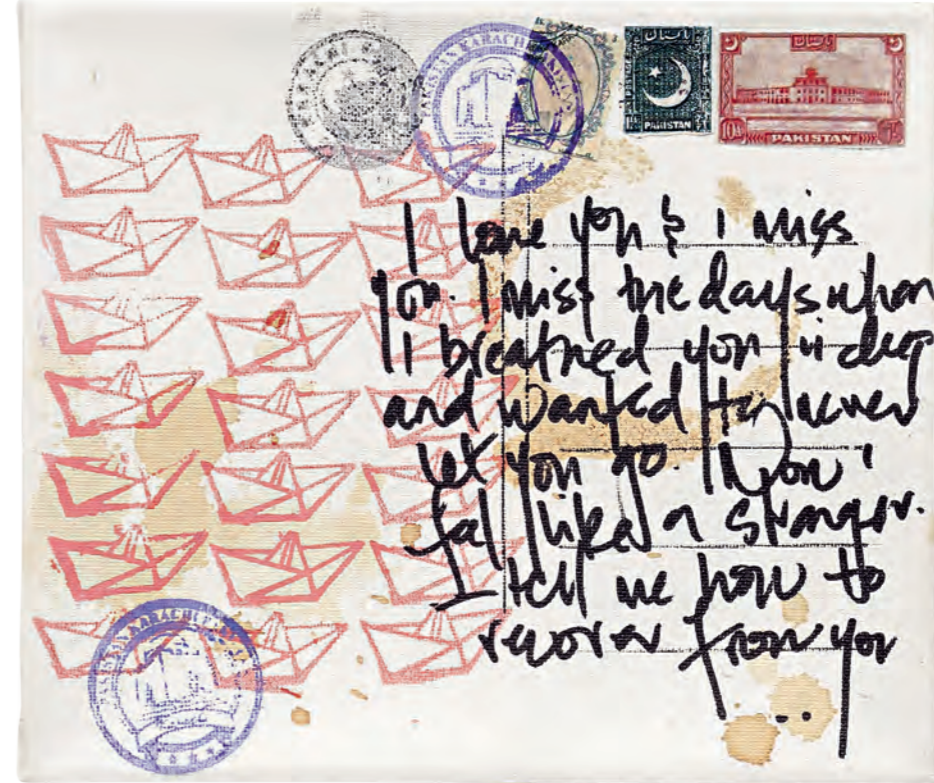 KARACHI
پاکستان
PAKISTAN
پاکستان
10As
PAKISTAN
I love you & I miss
you. I miss the days when
I breathed you in deep
and wanted to never
let you go. Now I
feel like a stranger.
tell me how to
recover from you
...
KARACHI